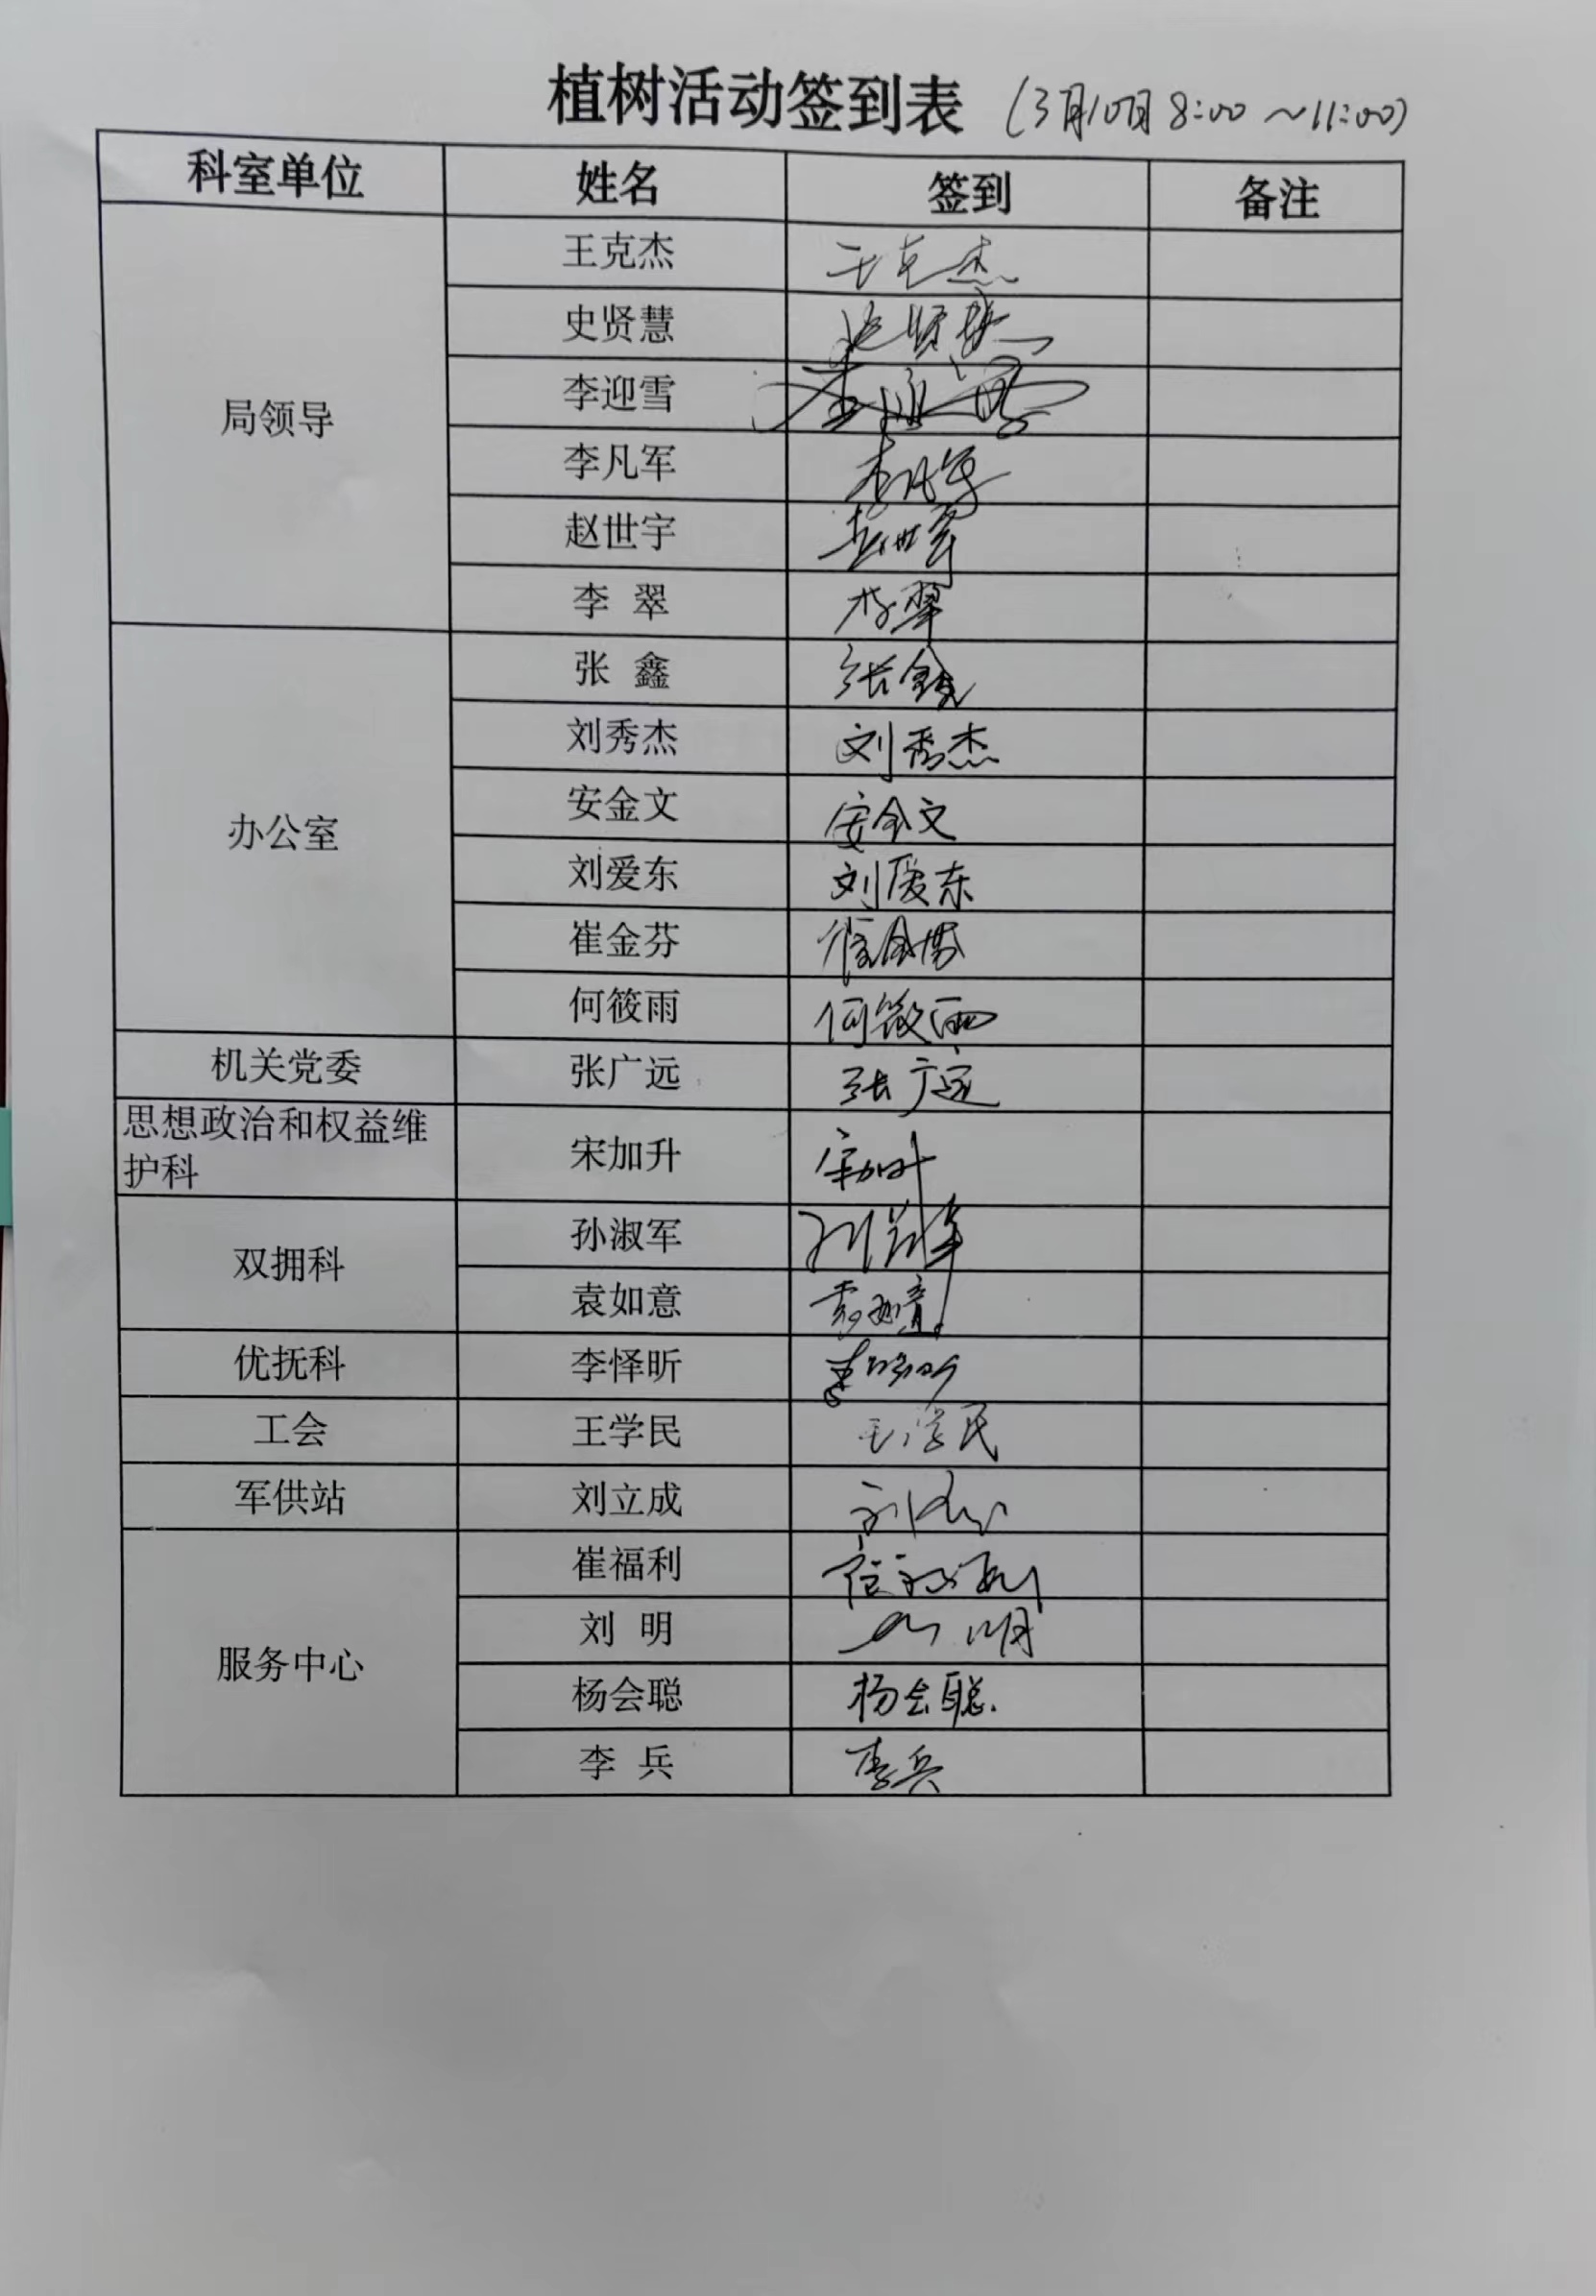 植树活动签到表 (3月10日 8:00 ~11:00)
科室单位 姓名 签到 备注
局领导 王克杰 王克杰
史贤慧 史贤慧
李迎雪 李迎雪
李凡军 李凡军
赵世宇 赵世宇
李 翠 李翠
办公室 张 鑫 张鑫
刘秀杰 刘秀杰
安金文 安金文
刘爱东 刘爱东
崔金芬 崔金芬
何筱雨 何筱雨
机关党委 张广远 张广远
思想政治和权益维
护科 宋加升 宋加升
双拥科 孙淑军 孙淑军
袁如意 袁如意
优抚科 李怿昕 李怿昕
工会 王学民 王学民
军供站 刘立成 刘立成
服务中心 崔福利 崔福利
刘 明 刘明
杨会聪 杨会聪
李 兵 李兵